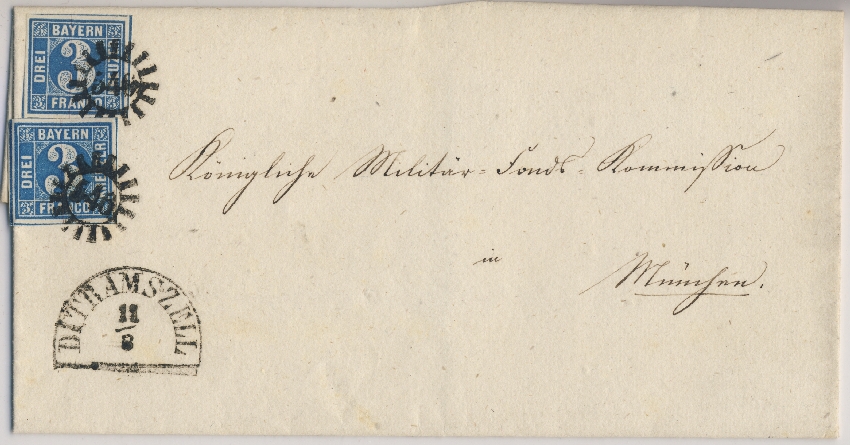 BAYERN
DREI
3
FRANCO
BAYERN
DREI
3
FRANCO
Königliche Militär-Fonds-Kommission
in
München.
DITRAMSZELL
11
8